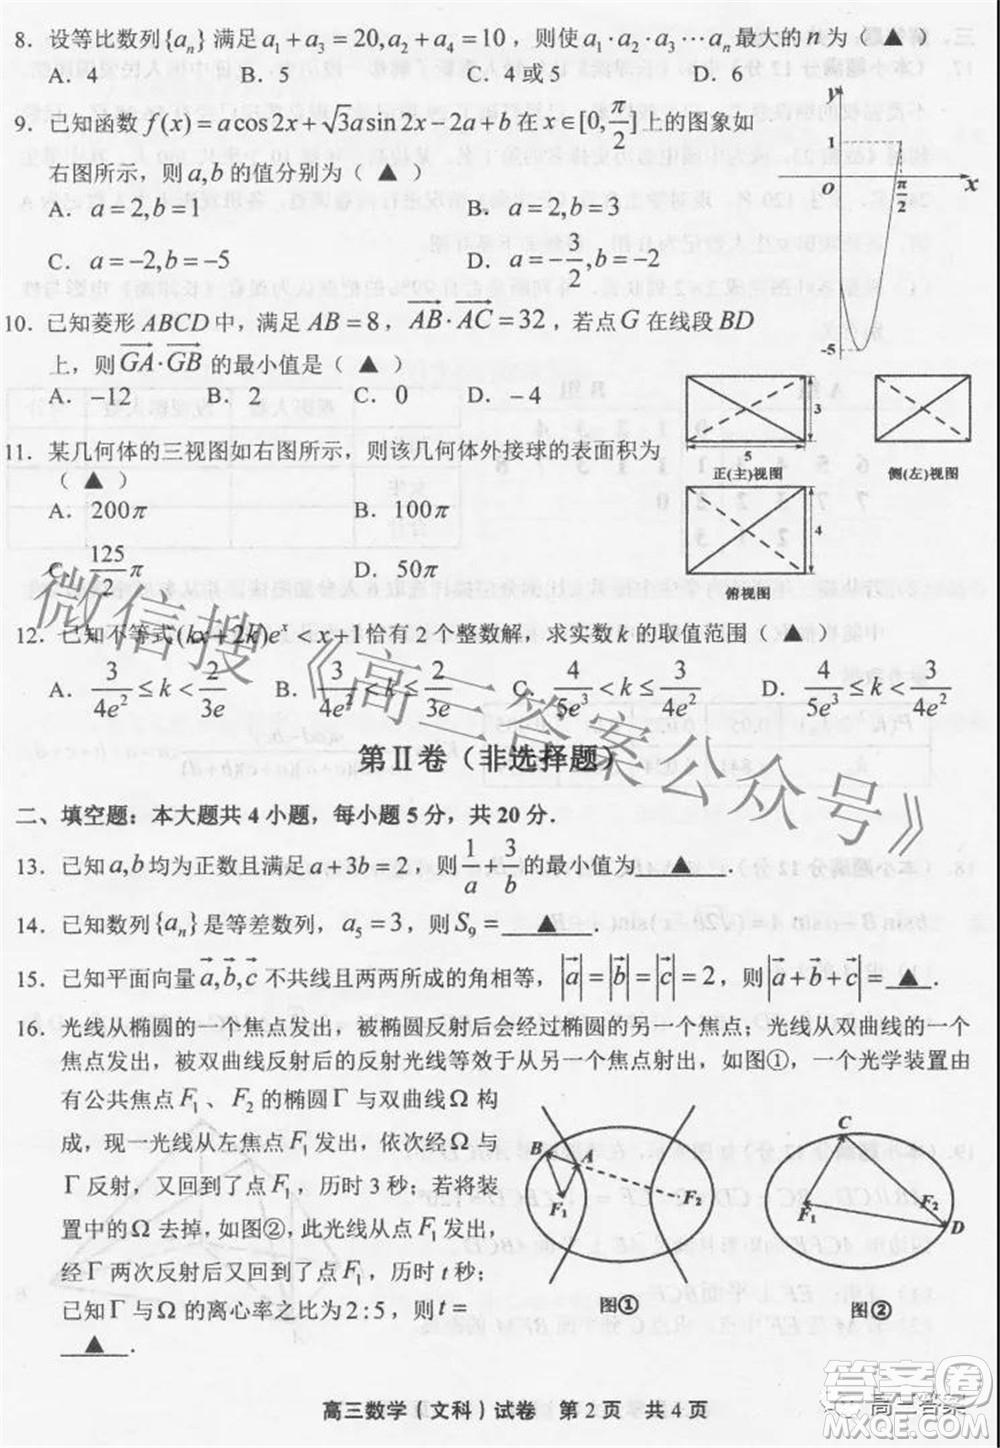 8．设等比数列{aₙ}满足a₁+a₃=20,a₂+a₄=10，则使a₁·a₂·a₃···aₙ最大的n为（ ▲ ）
A．4 B．5 C．4或5 D．6
9．已知函数f(x)=acos2x+√3asin2x-2a+b在x∈[0,π/2]上的图象如
右图所示，则a,b的值分别为（ ▲ ）
A．a=2,b=1 B．a=2,b=-5
C．a=-2,b=-5 D．a=-3/2,b=-2
y
1
O π/2 x
-5
10．已知菱形ABCD中，满足AB=8，AB·AC=32，若点G在线段BD
上，则GA·GB的最小值是（ ▲ ）
A．-12 B．2 C．0 D．-4
11．某几何体的三视图如右图所示，则该几何体外接球的表面积为
（ ▲ ）
A．200π B．100π
C．125/2 π D．50π
3
5
正(主)视图 侧(左)视图
4
俯视图
12．已知不等式(kx+2k)eˣ<x+1恰有2个整数解，求实数k的取值范围（ ▲ ）
A．3/4e²≤k<2/3e B．3/4e²<k≤2/3e C．4/5e³<k≤3/4e² D．4/5e³≤k<3/4e²
第Ⅱ卷（非选择题）
二、填空题：本大题共4小题，每小题5分，共20分．
13．已知a,b均为正数且满足a+3b=2，则1/a+3/b的最小值为 ▲ ．
14．已知数列{aₙ}是等差数列，a₅=3，则S₉= ▲ ．
15．已知平面向量a,b,c不共线且两两所成的角相等，|a|=|b|=|c|=2，则|a+b+c|= ▲ ．
16．光线从椭圆的一个焦点发出，被椭圆反射后会经过椭圆的另一个焦点；光线从双曲线的一个
焦点发出，被双曲线反射后的反射光线等效于从另一个焦点射出，如图①，一个光学装置由
有公共焦点F₁、F₂的椭圆Γ与双曲线Ω构
成，现一光线从左焦点F₁发出，依次经Ω与
Γ反射，又回到了点F₁，历时3秒；若将装
置中的Ω去掉，如图②，此光线从点F₁发出，
经Γ两次反射后又回到了点F₁，历时t秒；
已知Γ与Ω的离心率之比为2:5，则t=
▲ ．
B A F₁ F₂
图①
C F₁ F₂ D
图②
高三数学（文科）试卷 第2页 共4页
微信搜《高三答案公众号》
答案圈
高三答案